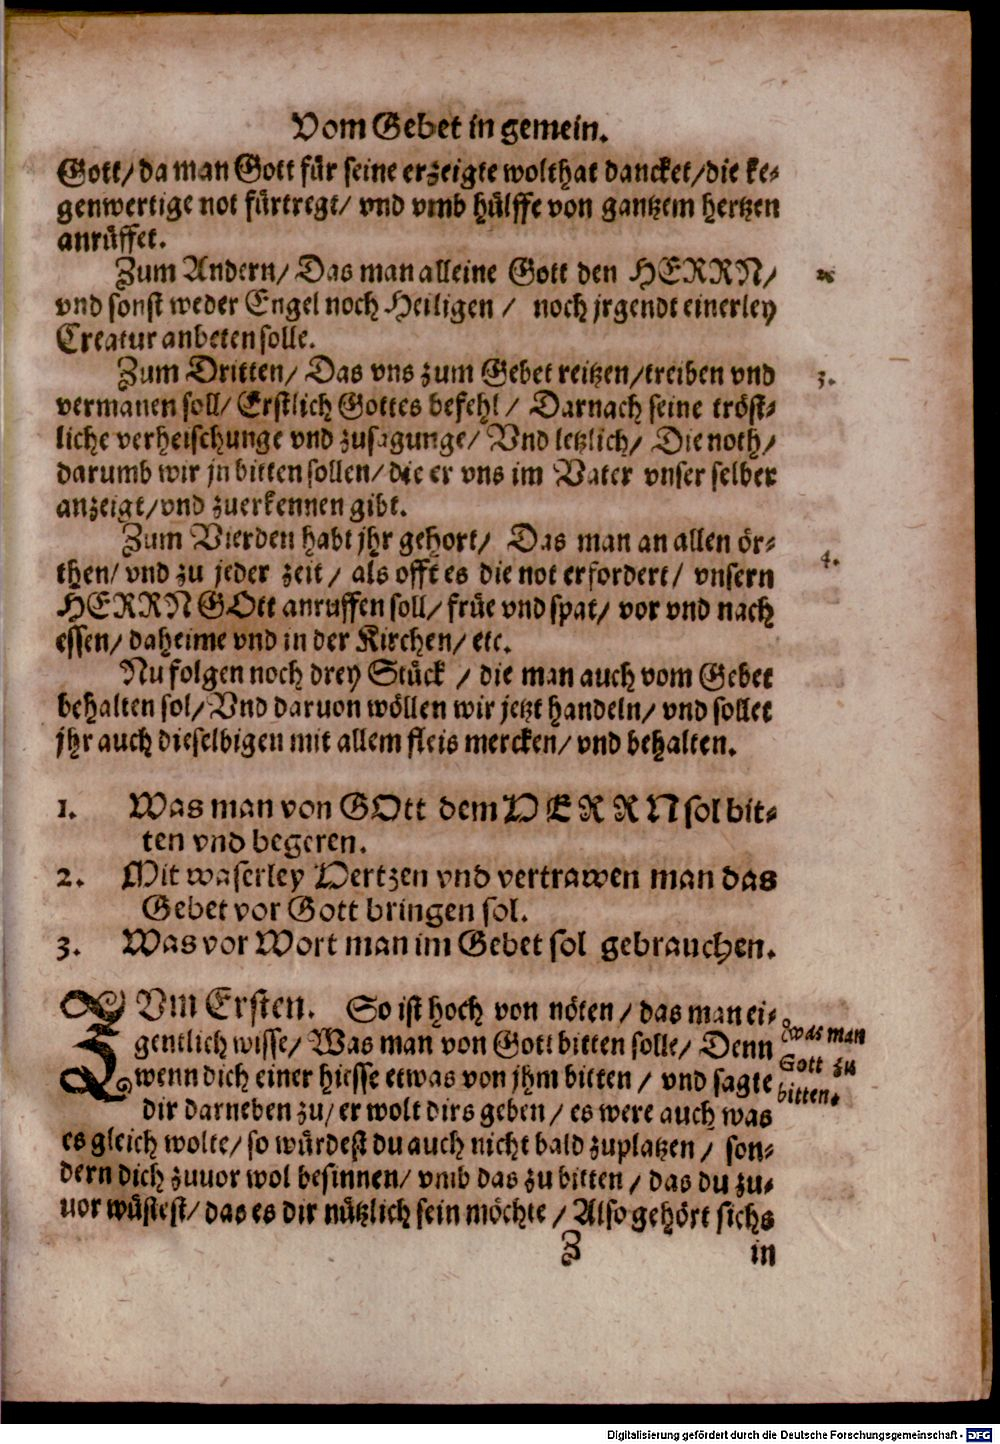 Vom Gebet in gemein.
Gott/ da man Gott für seine erzeigte wolthat dancket/ die ke⸗
genwertige not fürtregt/ vnd vmb hülffe von gantzem hertzen
anrüffet.
Zum Andern/ Das man alleine Gott den HERRN/
2.
vnd sonst weder Engel noch Heiligen / noch jrgendt einerley
Creatur anbeten solle.
Zum Dritten/ Das vns zum Gebet reitzen/ treiben vnd
3.
vermanen soll/ Erstlich Gottes befehl / Darnach seine tröst⸗
liche verheischunge vnd zusagunge/ Vnd letzlich/ Die noth/
darumb wir jn bitten sollen/ die er vns im Vater vnser selber
anzeigt/ vnd zuerkennen gibt.
Zum Vierden habt jhr gehort/ Das man an allen ör⸗
4.
then/ vnd zu jeder zeit / als offt es die not erfordert/ vnsern
HERRN GOtt anruffen soll/ früe vnd spat/ vor vnd nach
essen/ daheime vnd in der Kirchen/ etc.
Nu folgen noch drey Stück / die man auch vom Gebet
behalten sol/ Vnd daruon wöllen wir jetzt handeln/ vnd sollet
jhr auch dieselbigen mit allem fleis mercken/ vnd behalten.
1. Was man von GOtt dem HERRN sol bit⸗
ten vnd begeren.
2. Mit waserley Hertzen vnd vertrawen man das
Gebet vor Gott bringen sol.
3. Was vor Wort man im Gebet sol gebrauchen.
ZVm Ersten. So ist hoch von nöten / das man ei⸗
gentlich wisse/ Was man von Gott bitten solle/ Denn
wenn dich einer hiesse etwas von jhm bitten / vnd sagte
dir darneben zu/ er wolt dirs geben / es were auch was
es gleich wolte/ so würdest du auch nicht bald zuplatzen / son⸗
dern dich zuuor wol besinnen/ vmb das zu bitten / das du zu⸗
uor wüstest/ das es dir nützlich sein möchte / Also gehört sichs
Was man
Gott zu
bitten.
Z in
Digitalisierung gefördert durch die Deutsche Forschungsgemeinschaft - DFG